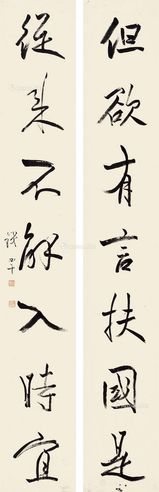 但欲有言扶國是
從來不解入時宜